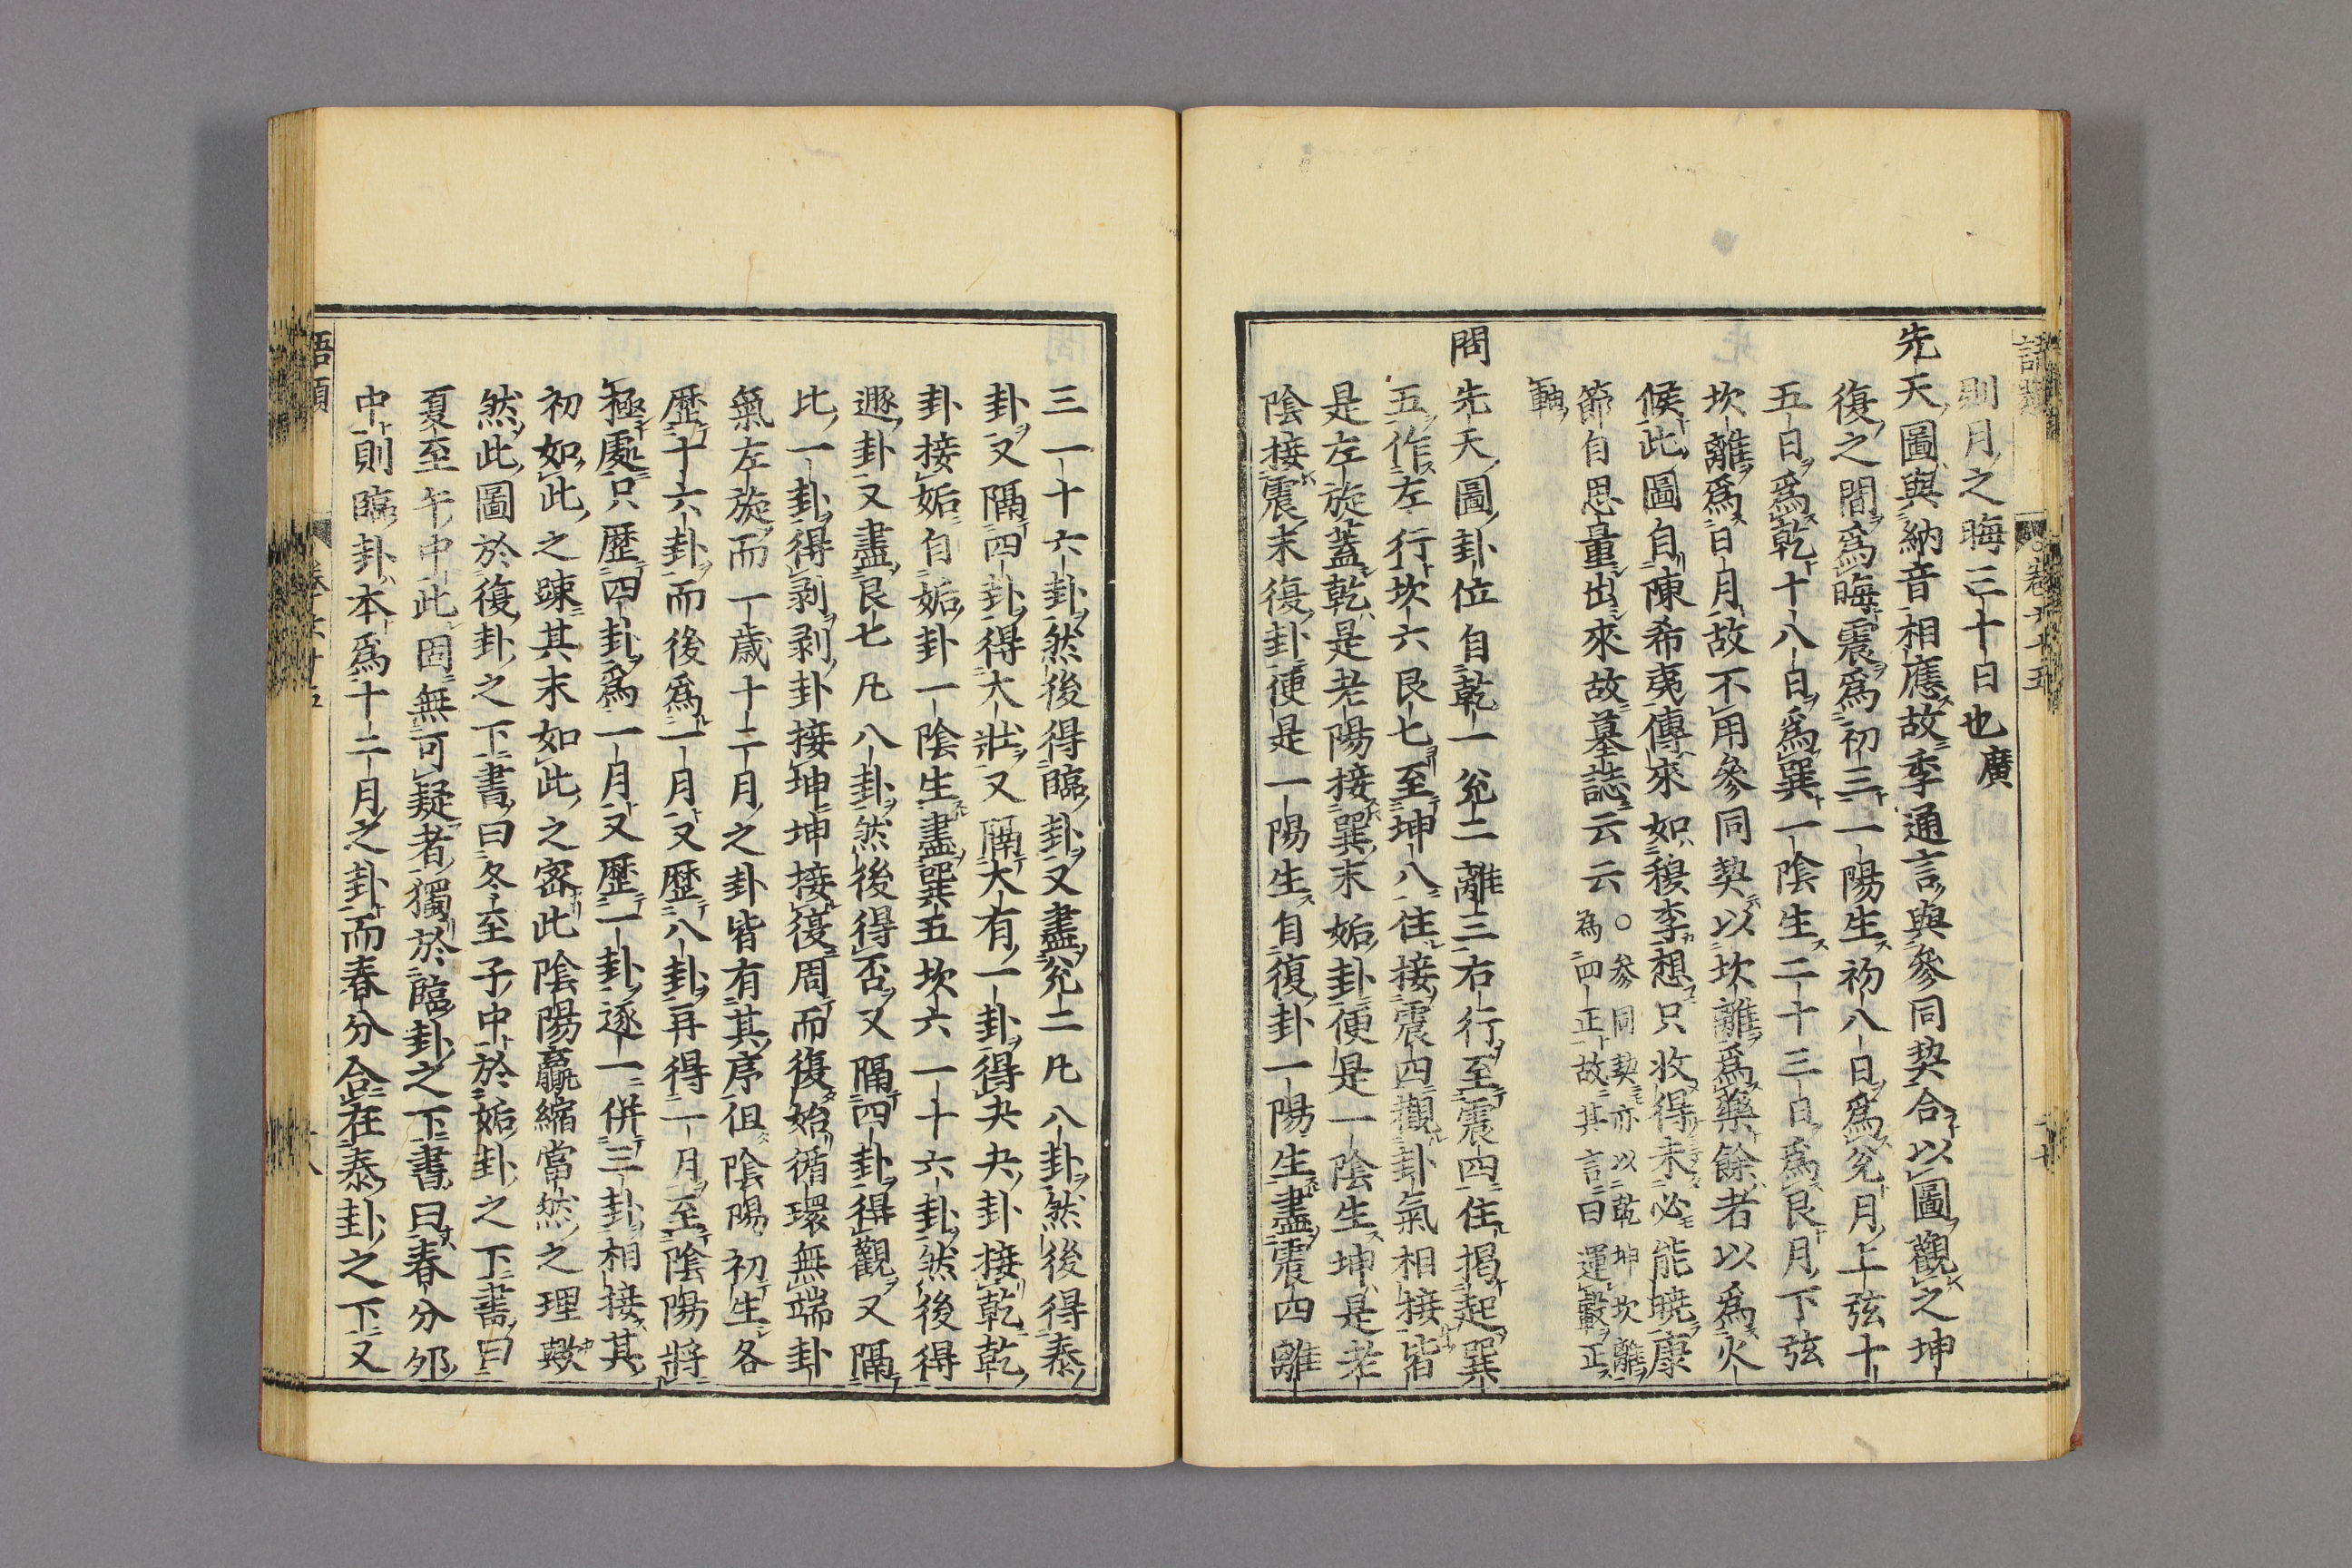 則月之晦三十日也廣
先天圖與納音相應故季通言與參同契合以圖觀之坤
復之間爲晦震爲初三一陽生初八日爲兌月上弦十
五日爲乾十八日爲巽一陰生二十三日爲艮月下弦
坎離爲日月故不用參同契以坎離爲藥餘者以爲火
候此圖自陳希夷傳來如穆李想只收得未必能曉康
節自思量出來故墓誌云云○參同契亦以乾坤坎離
為四正故其言曰運轂正
軸
問先天圖卦位自乾一兌二離三右行至震四住揭起巽
五作左行坎六艮七至坤八住接震四觀卦氣相接皆
是左旋蓋乾是老陽接巽末姤卦便是一陰生坤是老
陰接震末復卦便是一陽生自復卦一陽生盡震四離
三一十六卦然後得臨卦又盡兌二凡八卦然後得泰
卦又隔四卦得大壯又隔大有一卦得夬夬卦接乾乾
卦接姤自姤卦一陰生盡巽五坎六一十六卦然後得
遯卦又盡艮七凡八卦然後得否又隔四卦得觀又隔
比一卦得剥剥卦接坤坤接復周而復始循環無端卦
氣左旋而一歲十二月之卦皆有其序但陰陽初生各
歷十六卦而後爲一月又歷八卦再得一月至陰陽將
極處只歷四卦爲一月又歷一卦逐一併三卦相接其
初如此之踈其末如此之密此陰陽贏縮當然之理歟
然此圖於復卦之下書曰冬至子中於姤卦之下書曰
夏至午中此固無可疑者獨於臨卦之下書曰春分夘
中則臨卦本爲十二月之卦而春分合在泰卦之下又
語類